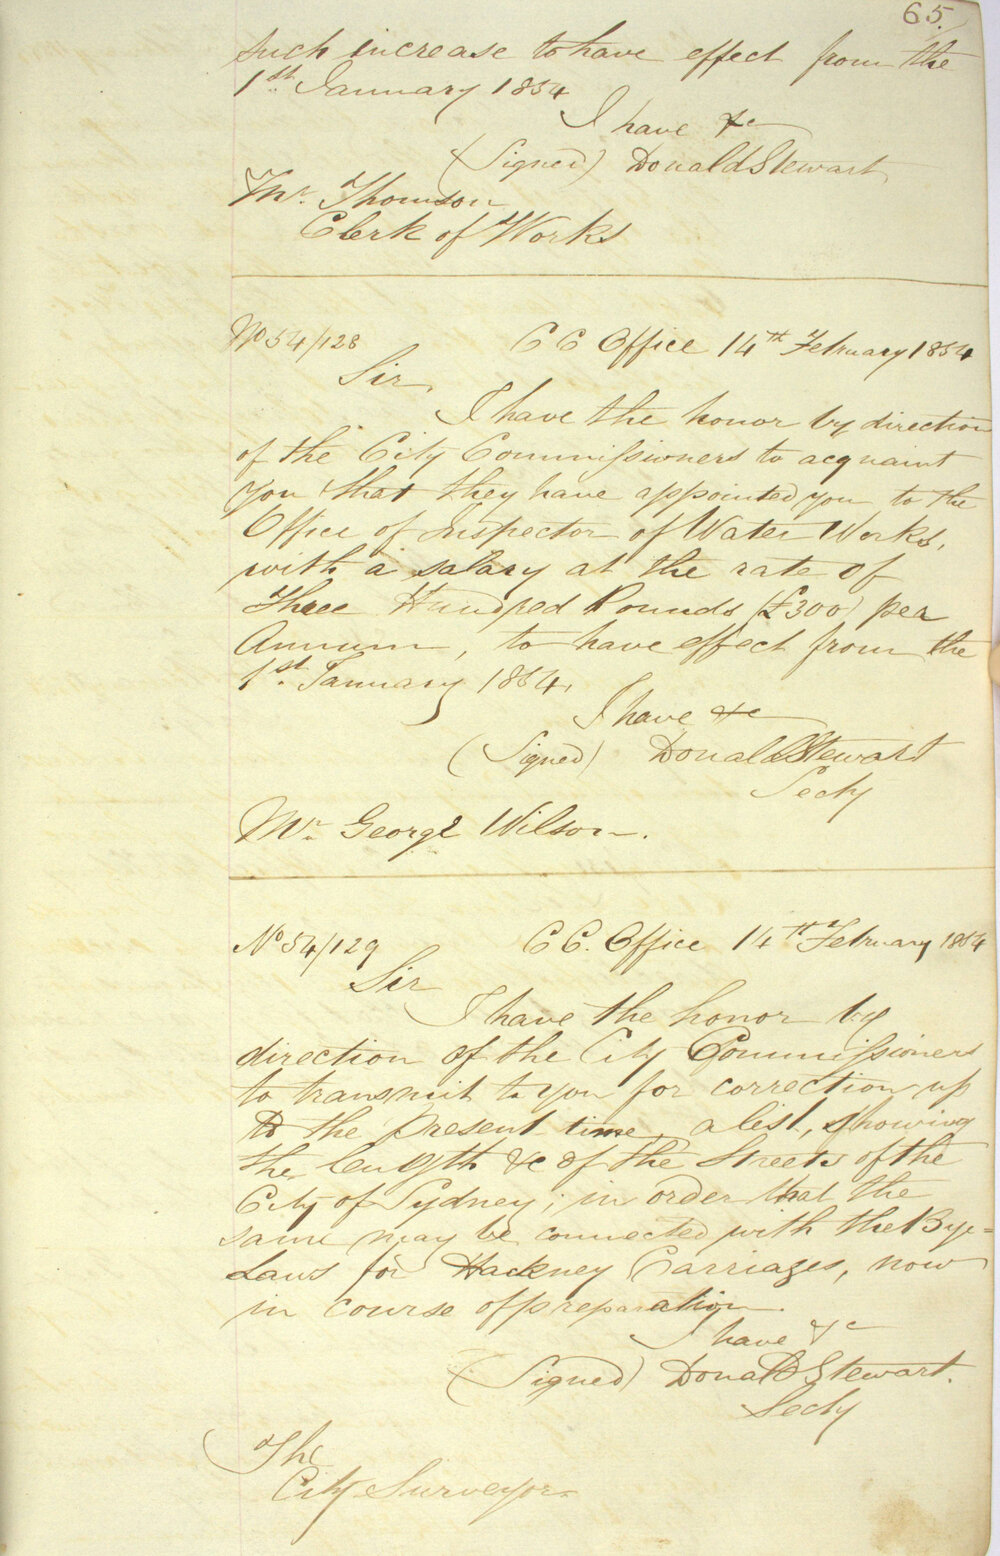 65.
such increase to have effect from the
1st January 1854
I have &c
(Signed) Donald Stewart
Mr. Thomson
Clerk of Works
No 54/128 C C Office 14th February 1854
Sir,
I have the honor by direction
of the City Commissioners to acquaint
you that they have appointed you to the
Office of Inspector of Water Works,
with a salary at the rate of
Three Hundred Pounds (£300) per
Annum, to have effect from the
1st January 1854,
I have &c
(Signed) Donald Stewart
Secty
Mr. George Wilson.
No 54/129 C C. Office 14th February 1854
Sir
I have the honor by
direction of the City Commissioners
to transmit to you for correction up
to the present time, a list, showing
the length &c of the Streets of the
City of Sydney; in order that the
same may be connected with the Bye=
Laws for Hackney Carriages, now
in course of preparation.
I have &c
(Signed) Donald Stewart.
Secty
The
City Surveyor